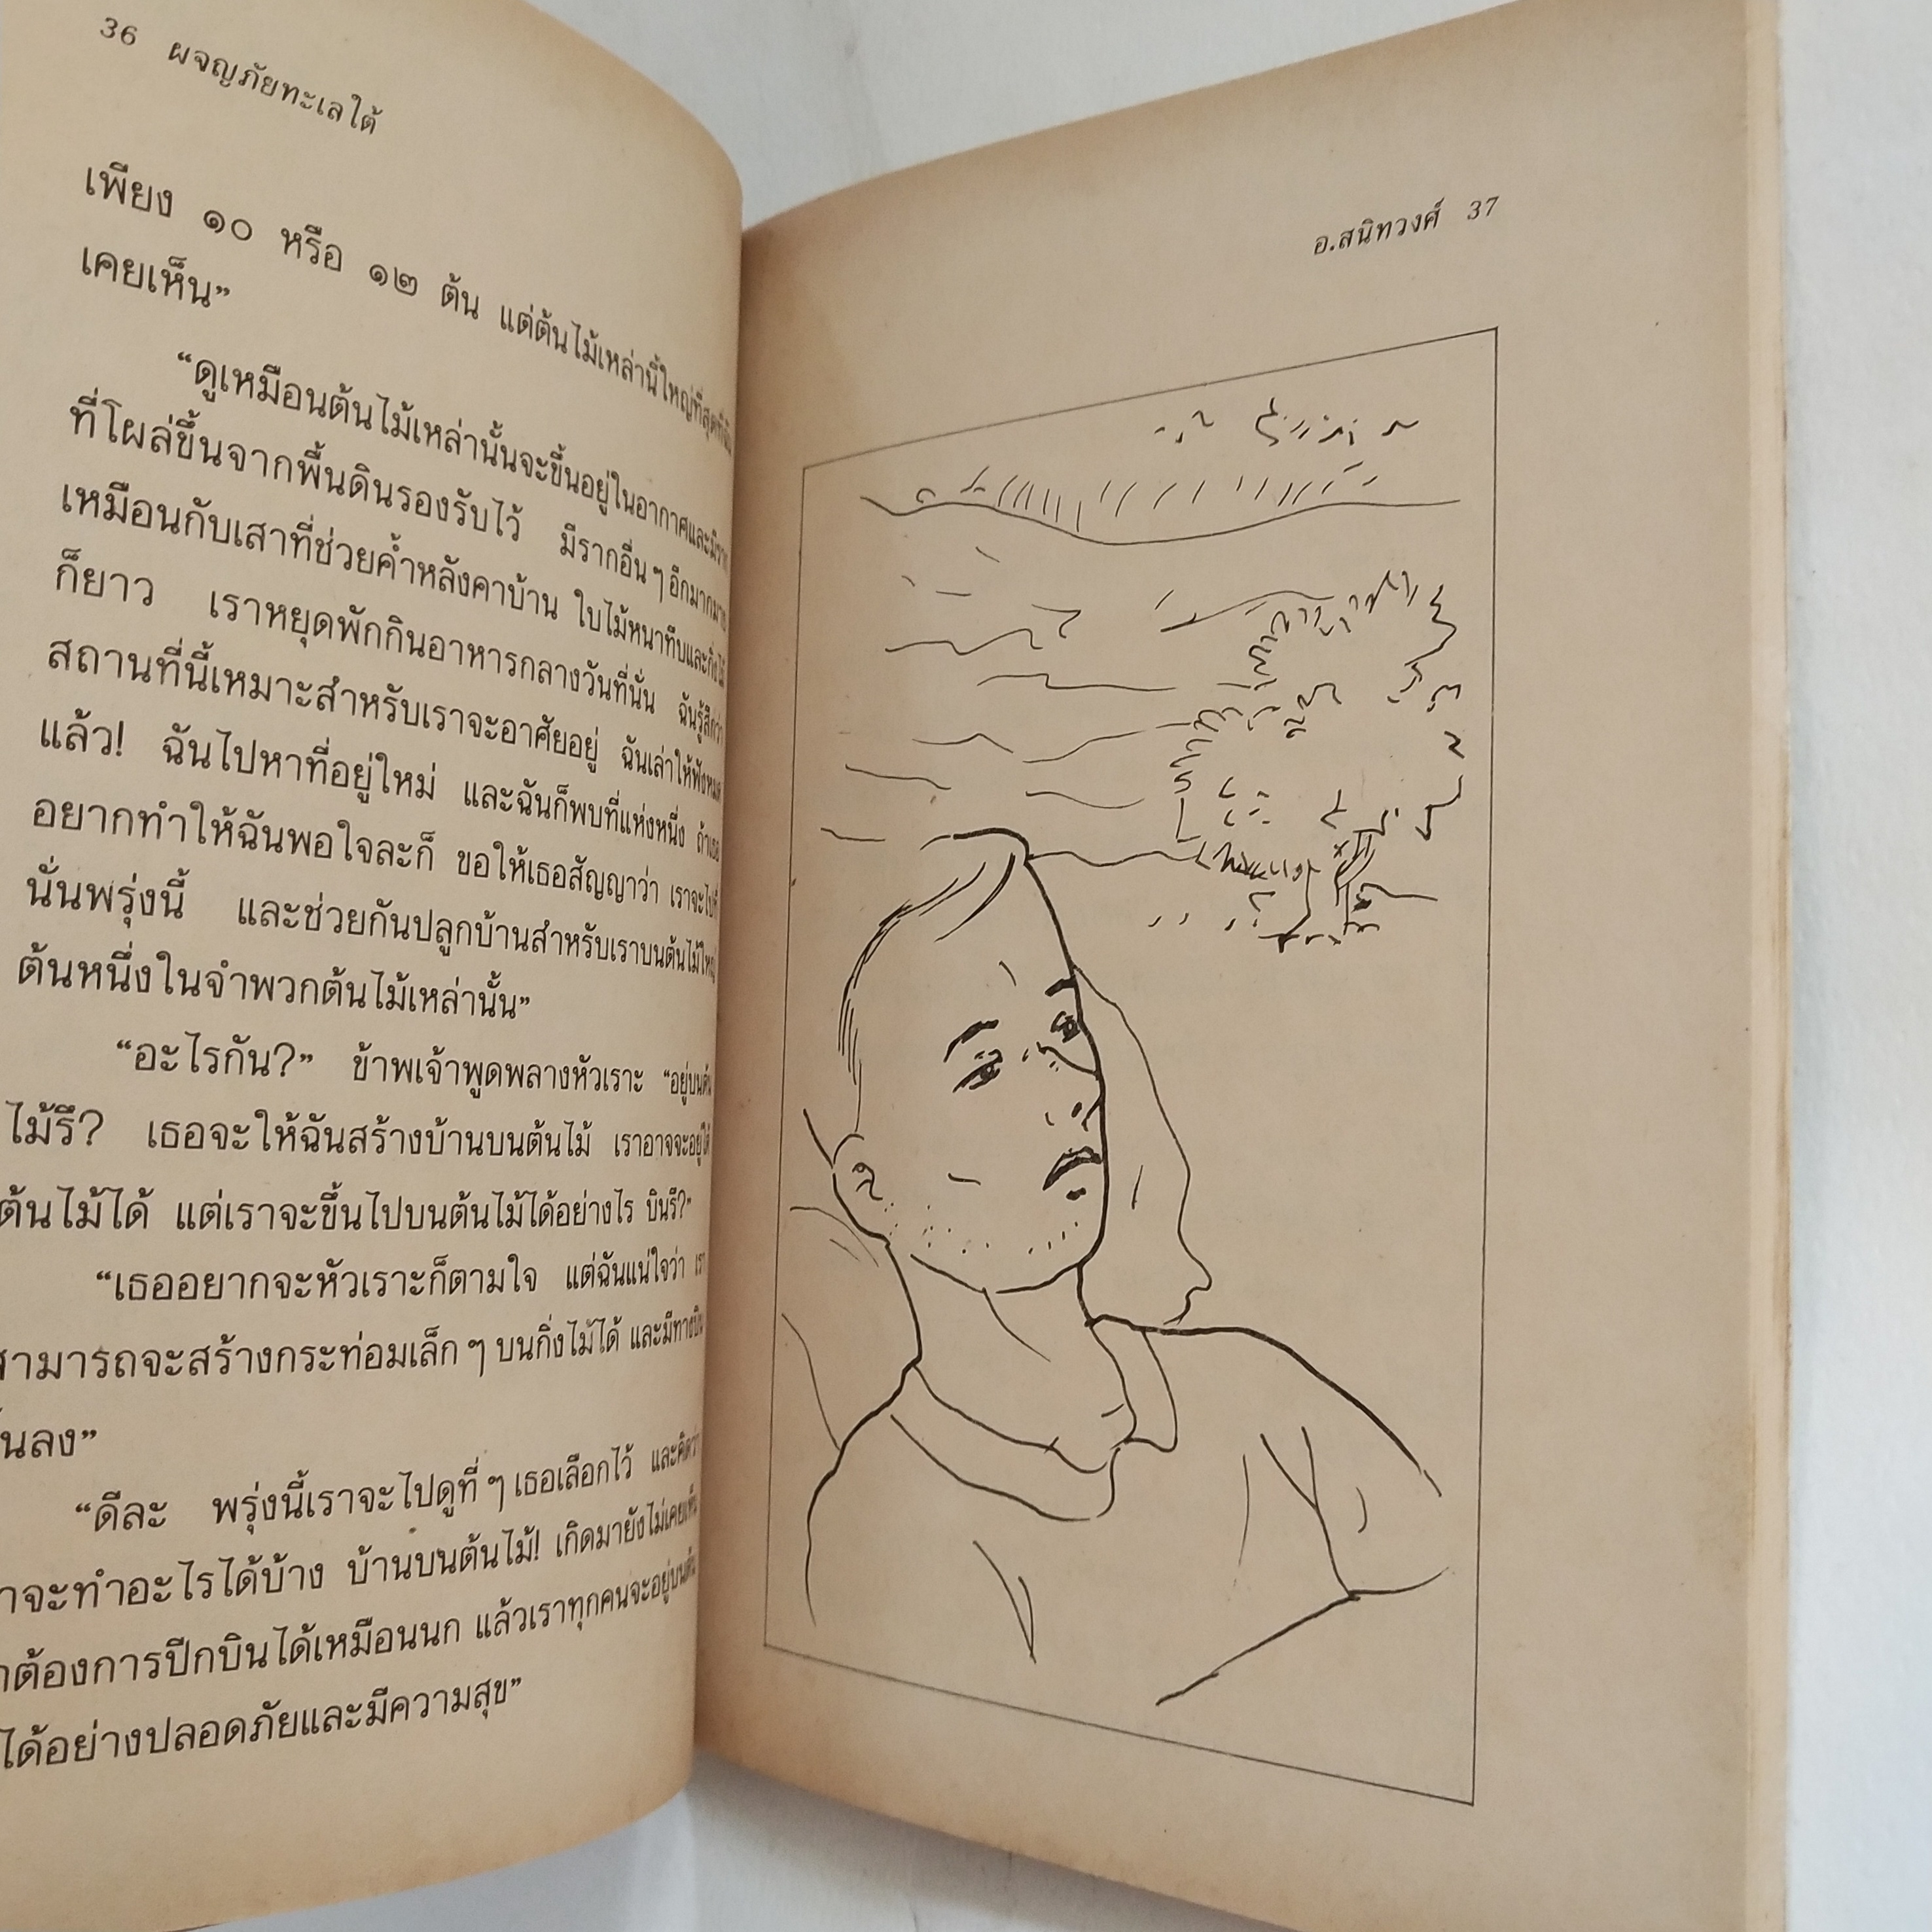 36 ผจญภัยทะเลใต้
เพียง ๑๐ หรือ ๑๒ ต้น แต่ต้นไม้เหล่านี้ใหญ่ที่สุดที่ฉัน
เคยเห็น”
“ดูเหมือนต้นไม้เหล่านั้นจะขึ้นอยู่ในอากาศและมีราก
ที่โผล่ขึ้นจากพื้นดินรองรับไว้ มีรากอื่นๆ อีกมากมาย
เหมือนกับเสาที่ช่วยค้ำหลังคาบ้าน ใบไม้หนาทึบและกิ่งไม้
ก็ยาว เราหยุดพักกินอาหารกลางวันที่นั่น ฉันรู้สึกว่า
สถานที่นี้เหมาะสำหรับเราจะอาศัยอยู่ ฉันเล่าให้ฟังหมด
แล้ว! ฉันไปหาที่อยู่ใหม่ และฉันก็พบที่แห่งหนึ่ง ถ้าเธอ
อยากทำให้ฉันพอใจละก็ ขอให้เธอสัญญาว่า เราจะไปที่
นั่นพรุ่งนี้ และช่วยกันปลูกบ้านสำหรับเราบนต้นไม้ใหญ่
ต้นหนึ่งในจำพวกต้นไม้เหล่านั้น”
“อะไรกัน?” ข้าพเจ้าพูดพลางหัวเราะ “อยู่บนต้น
ไม้รึ? เธอจะให้ฉันสร้างบ้านบนต้นไม้ เราอาจจะอยู่ใต้
ต้นไม้ได้ แต่เราจะขึ้นไปบนต้นไม้ได้อย่างไร บินรึ?”
“เธออยากจะหัวเราะก็ตามใจ แต่ฉันแน่ใจว่า เรา
สามารถจะสร้างกระท่อมเล็กๆ บนกิ่งไม้ได้ และมีทาง
ลง”
“ดีละ พรุ่งนี้เราจะไปดูที่ๆ เธอเลือกไว้ และคิดว่า
จะทำอะไรได้บ้าง บ้านบนต้นไม้! เกิดมายังไม่เคยเห็น
ต้องการปีกบินได้เหมือนนก แล้วเราทุกคนจะอยู่บนต้น
ได้อย่างปลอดภัยและมีความสุข”
อ.สนิทวงศ์ 37